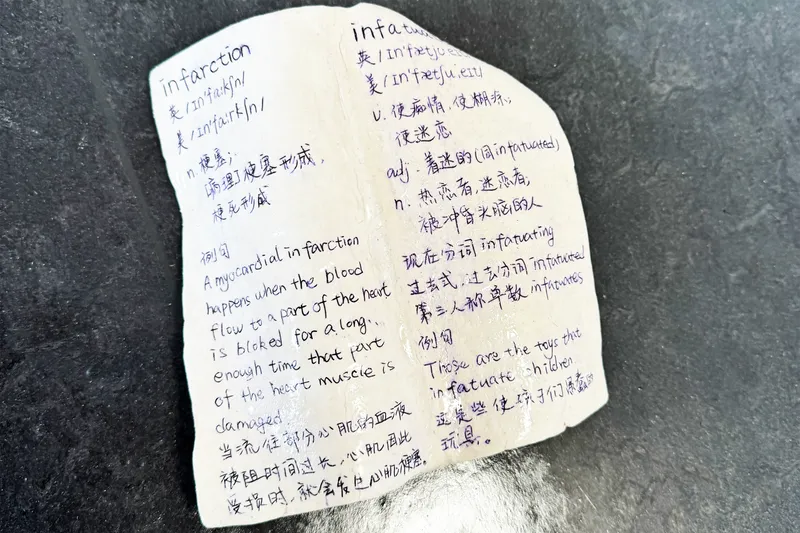 infarction
英/In'fa:kʃn/
美/In'fa:rkʃn/
n.梗塞;
[病理]梗塞形成,
梗死形成
例句
A myocardial infarction
happens when the blood
flow to a part of the heart
is bloked for a long.
enough time that part
of the heart muscle is
damaged.
当流往部分心肌的血液
被阻时间过长,心肌因此
受损时,就会发生心肌梗塞。
英/In'fætʃu
美/In'fætʃu.eIt/
v.使痴情,使糊涂、
使迷恋
adj.着迷的(同infatuated)
n.热恋者,迷恋者,
被冲昏头脑的人
现在分词infatuating
过去式,过去分词infatuated
第三人称单数infatuates
例句
Those are the toys that
infatuate children
这是些使孩子们
玩具。